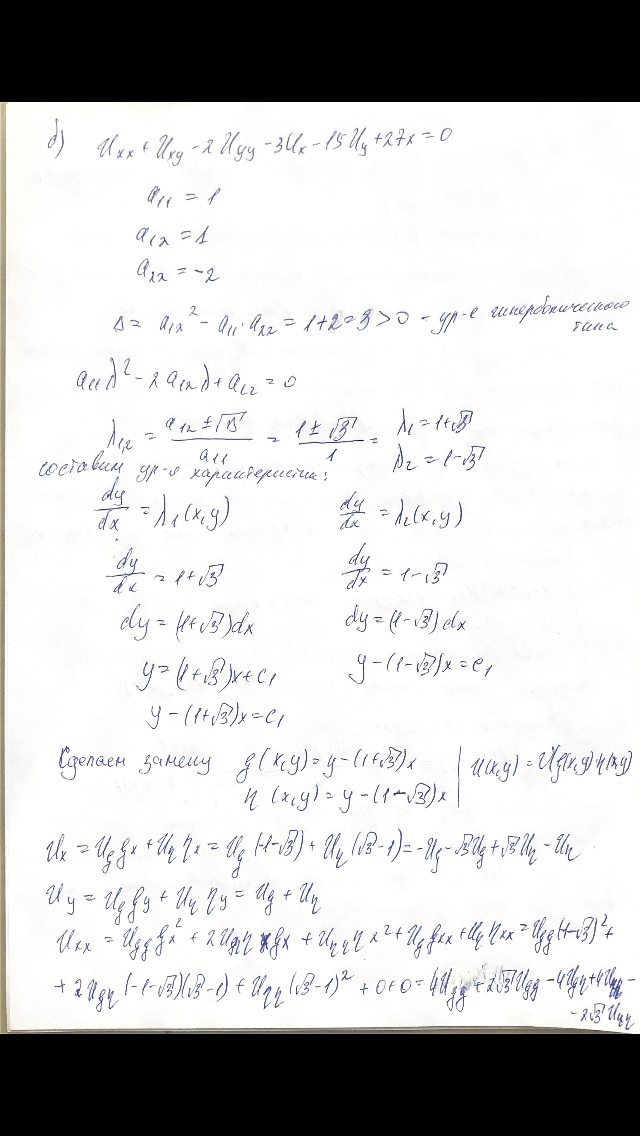 б) Uxx + Uxy - 2Uyy - 3Ux - 15Uy + 27x = 0
a₁₁ = 1
a₁₂ = 1
a₂₂ = -2
Δ = a₁₂² - a₁₁·a₂₂ = 1+2=3>0 - ур-е гиперболического
типа
a₁₁λ² - 2a₁₂λ + a₂₂ = 0
λ₁,₂ = (a₁₂ ± √Δ)/a₁₁ = (1 ± √3)/1 = λ₁ = 1+√3
λ₂ = 1-√3
составим ур-я характеристик:
dy/dx = λ₁(x,y) dy/dx = λ₂(x,y)
dy/dx = 1+√3 dy/dx = 1-√3
dy = (1+√3)dx dy = (1-√3)dx
y = (1+√3)x + c₁ y - (1-√3)x = c₁
y - (1+√3)x = c₁
Сделаем замену ξ(x,y) = y - (1+√3)x | U(x,y) = U(ξ(x,y) η(x,y)
η(x,y) = y - (1-√3)x
Ux = Uξ ξx + Uη ηx = Uξ(-1-√3) + Uη(√3-1) = -Uξ - √3Uξ + √3Uη - Uη
Uy = Uξ ξy + Uη ηy = Uξ + Uη
Uxx = Uξξ ξx² + 2Uξη ηx ξx + Uηη ηx² + Uξ ξxx + Uη ηxx = Uξξ(1-√3)² +
+ 2Uξη(-1-√3)(√3-1) + Uηη(√3-1)² + 0+0 = 4Uξξ + 2√3Uξξ - 4Uξη + 4Uηη -
- 2√3Uηη